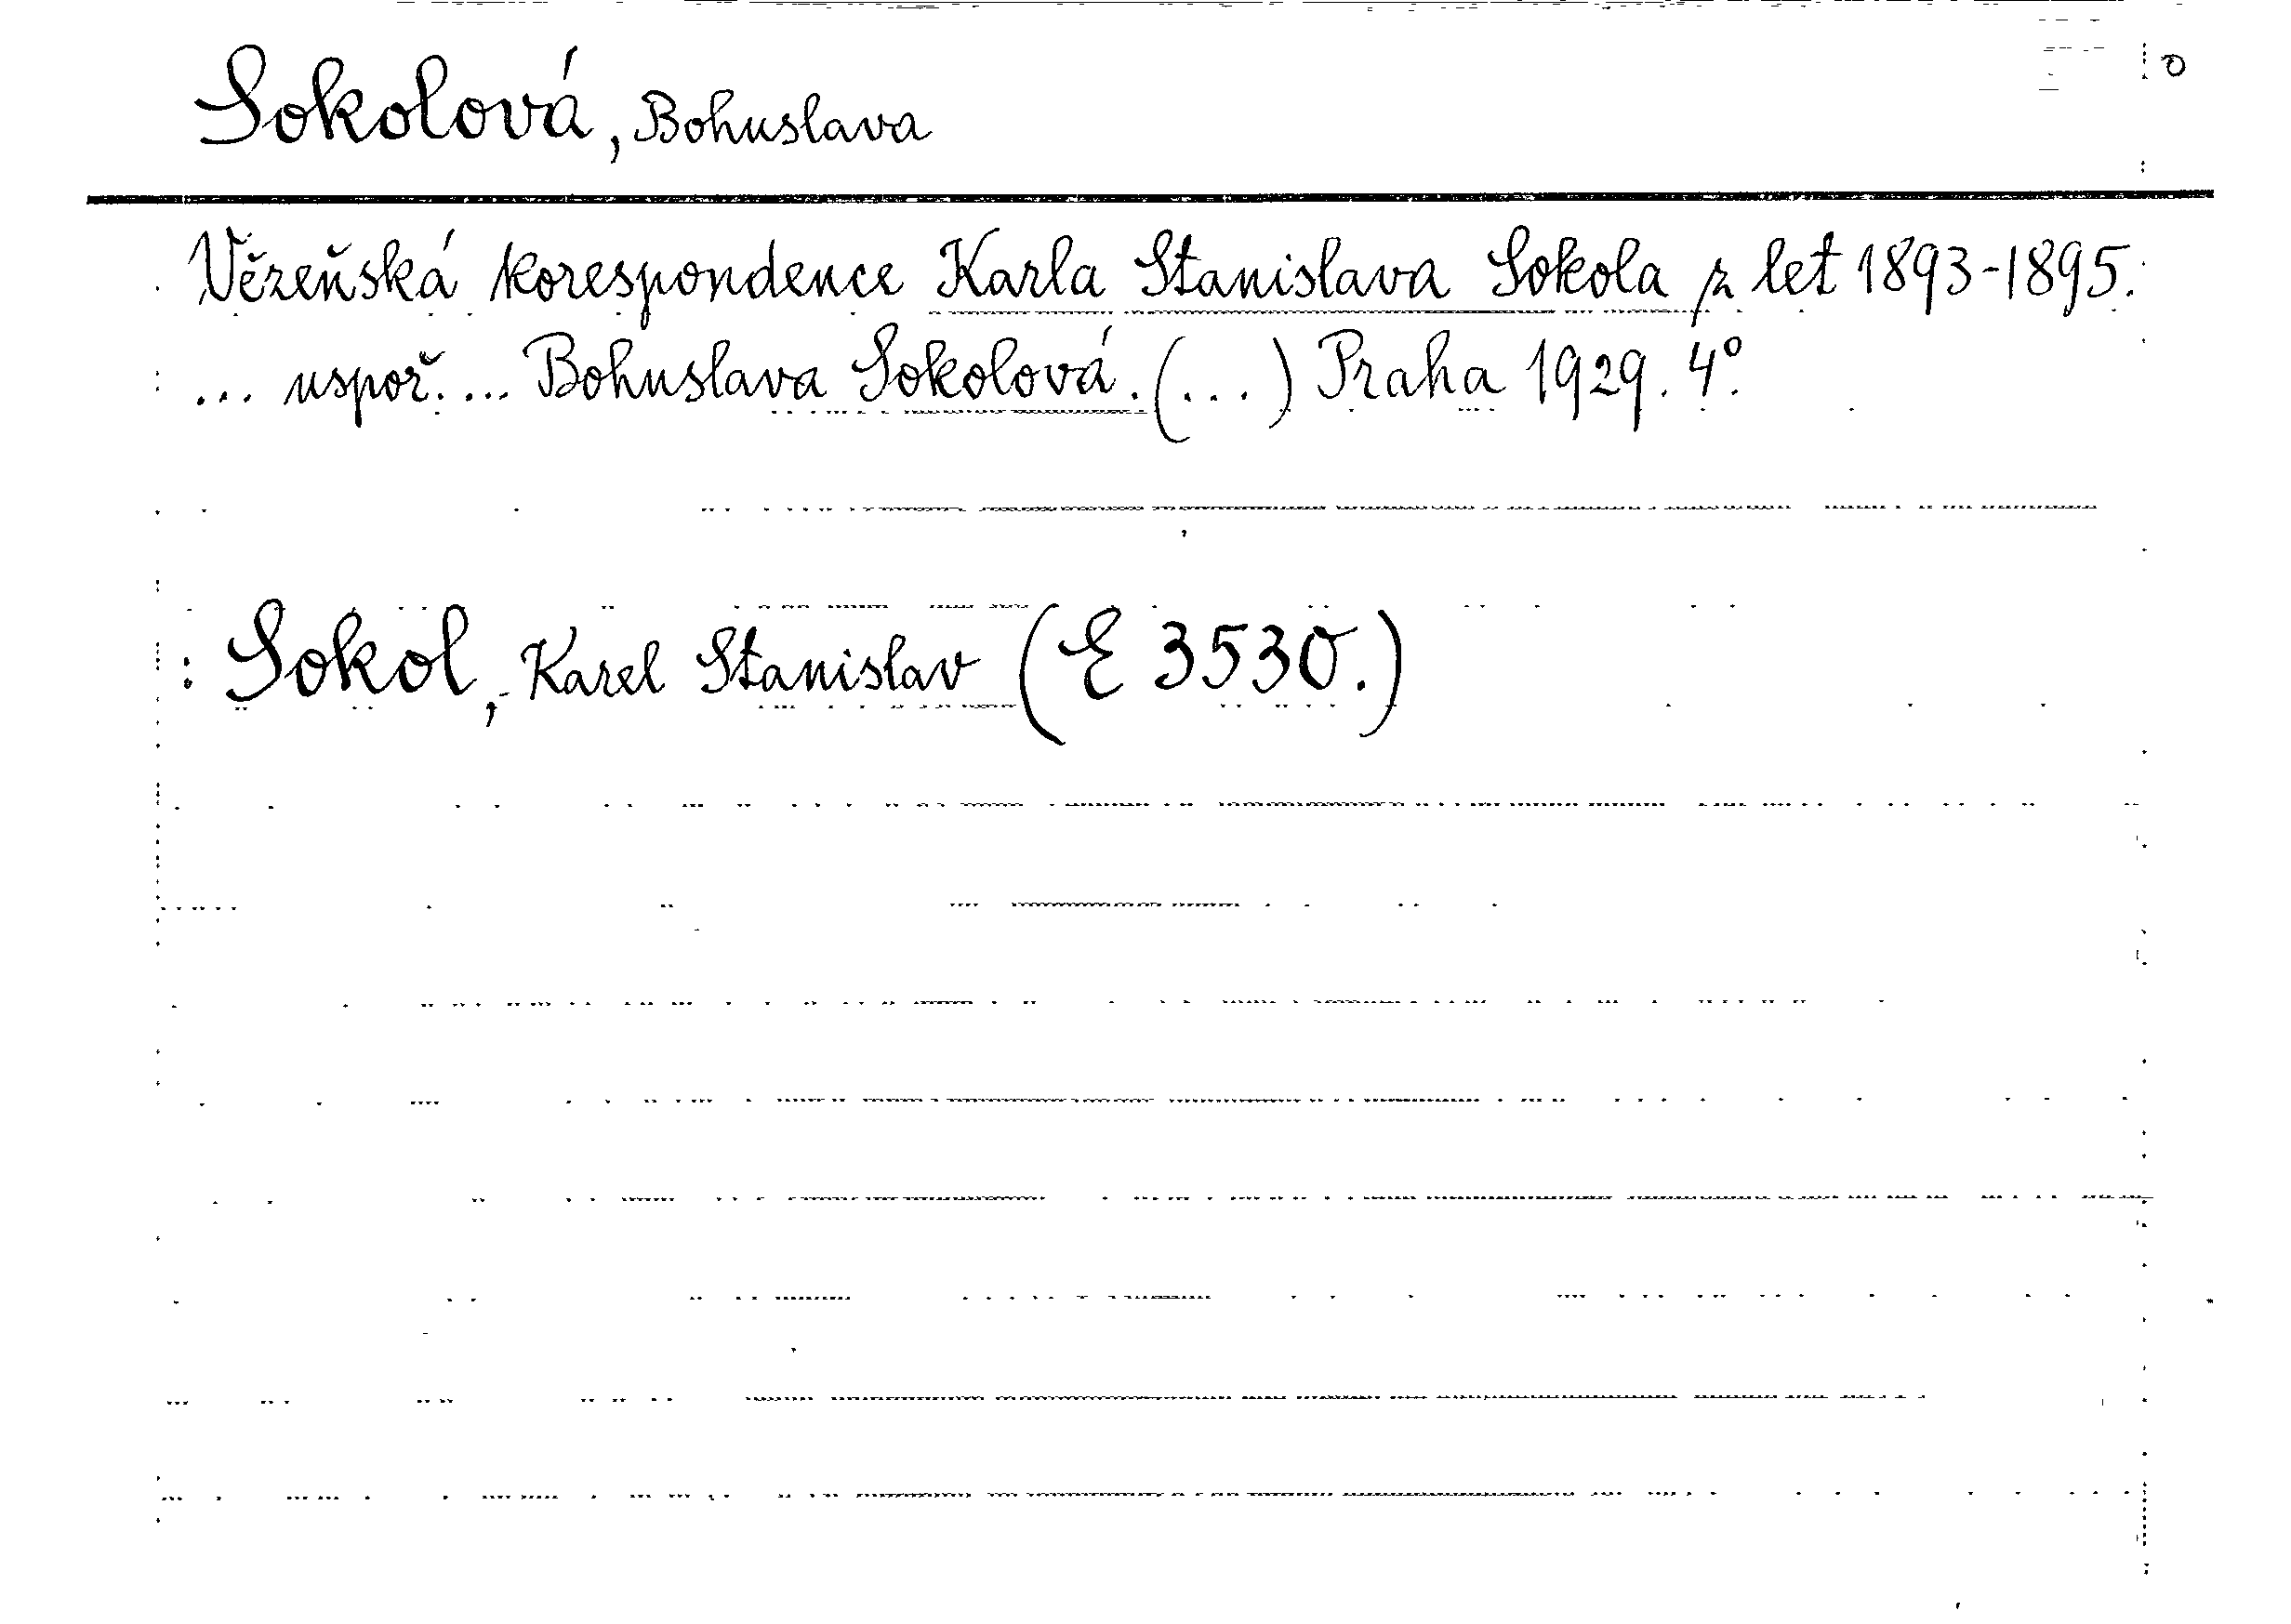 Sokolová, Bohuslava
Vězeňská korespondence Karla Stanislava Sokola z let 1893-1895.
... uspoř. ... Bohuslava Sokolová. (...) Praha 1929. 4°.
: Sokol, Karel Stanislav (E 3530.)